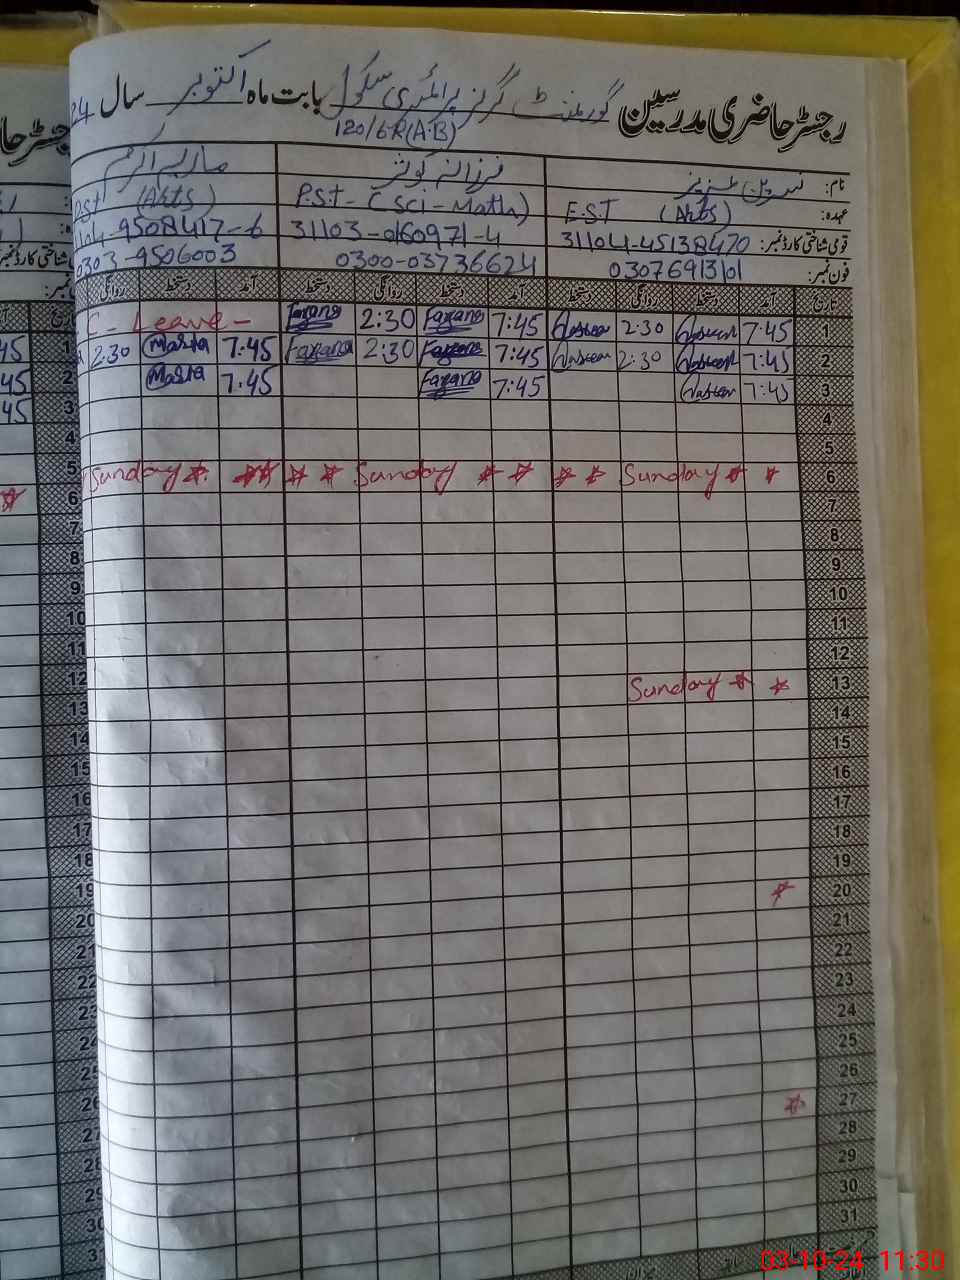 رجسٹر حاضری مدرسین گورنمنٹ گرلز پرائمری سکول بابت ماہ اکتوبر سال 24
120/6R(A.B)
نام: نسرین عزیز فرزانہ کوثر
عہدہ: E.S.T (Arts) P.S.T - (Sci - Math) PST (Arts)
قومی شناختی کارڈ نمبر: 31104-45138470 31103-0160971-4 1104-9508417-6
فون نمبر: 03076913101 0300-03736624 0303-9506003
تاریخ آمد دستخط روانگی دستخط آمد دستخط روانگی دستخط آمد دستخط روانگی
1 7:45 Nasreen 2:30 Nasreen 7:45 Fazana 2:30 Fazana C - Leave -
2 7:45 Nasreen 2:30 Nasreen 7:45 Fazana 2:30 Fazana 7:45 Maria 2:30
3 7:45 Nasreen 7:45 Fazana 7:45 Maria
4
5
6 Sunday Sunday Sunday
7
8
9
10
11
12
13 Sunday
14
15
16
17
18
19
20
21
22
23
24
25
26
27
28
29
30
31
03-10-24 11:30